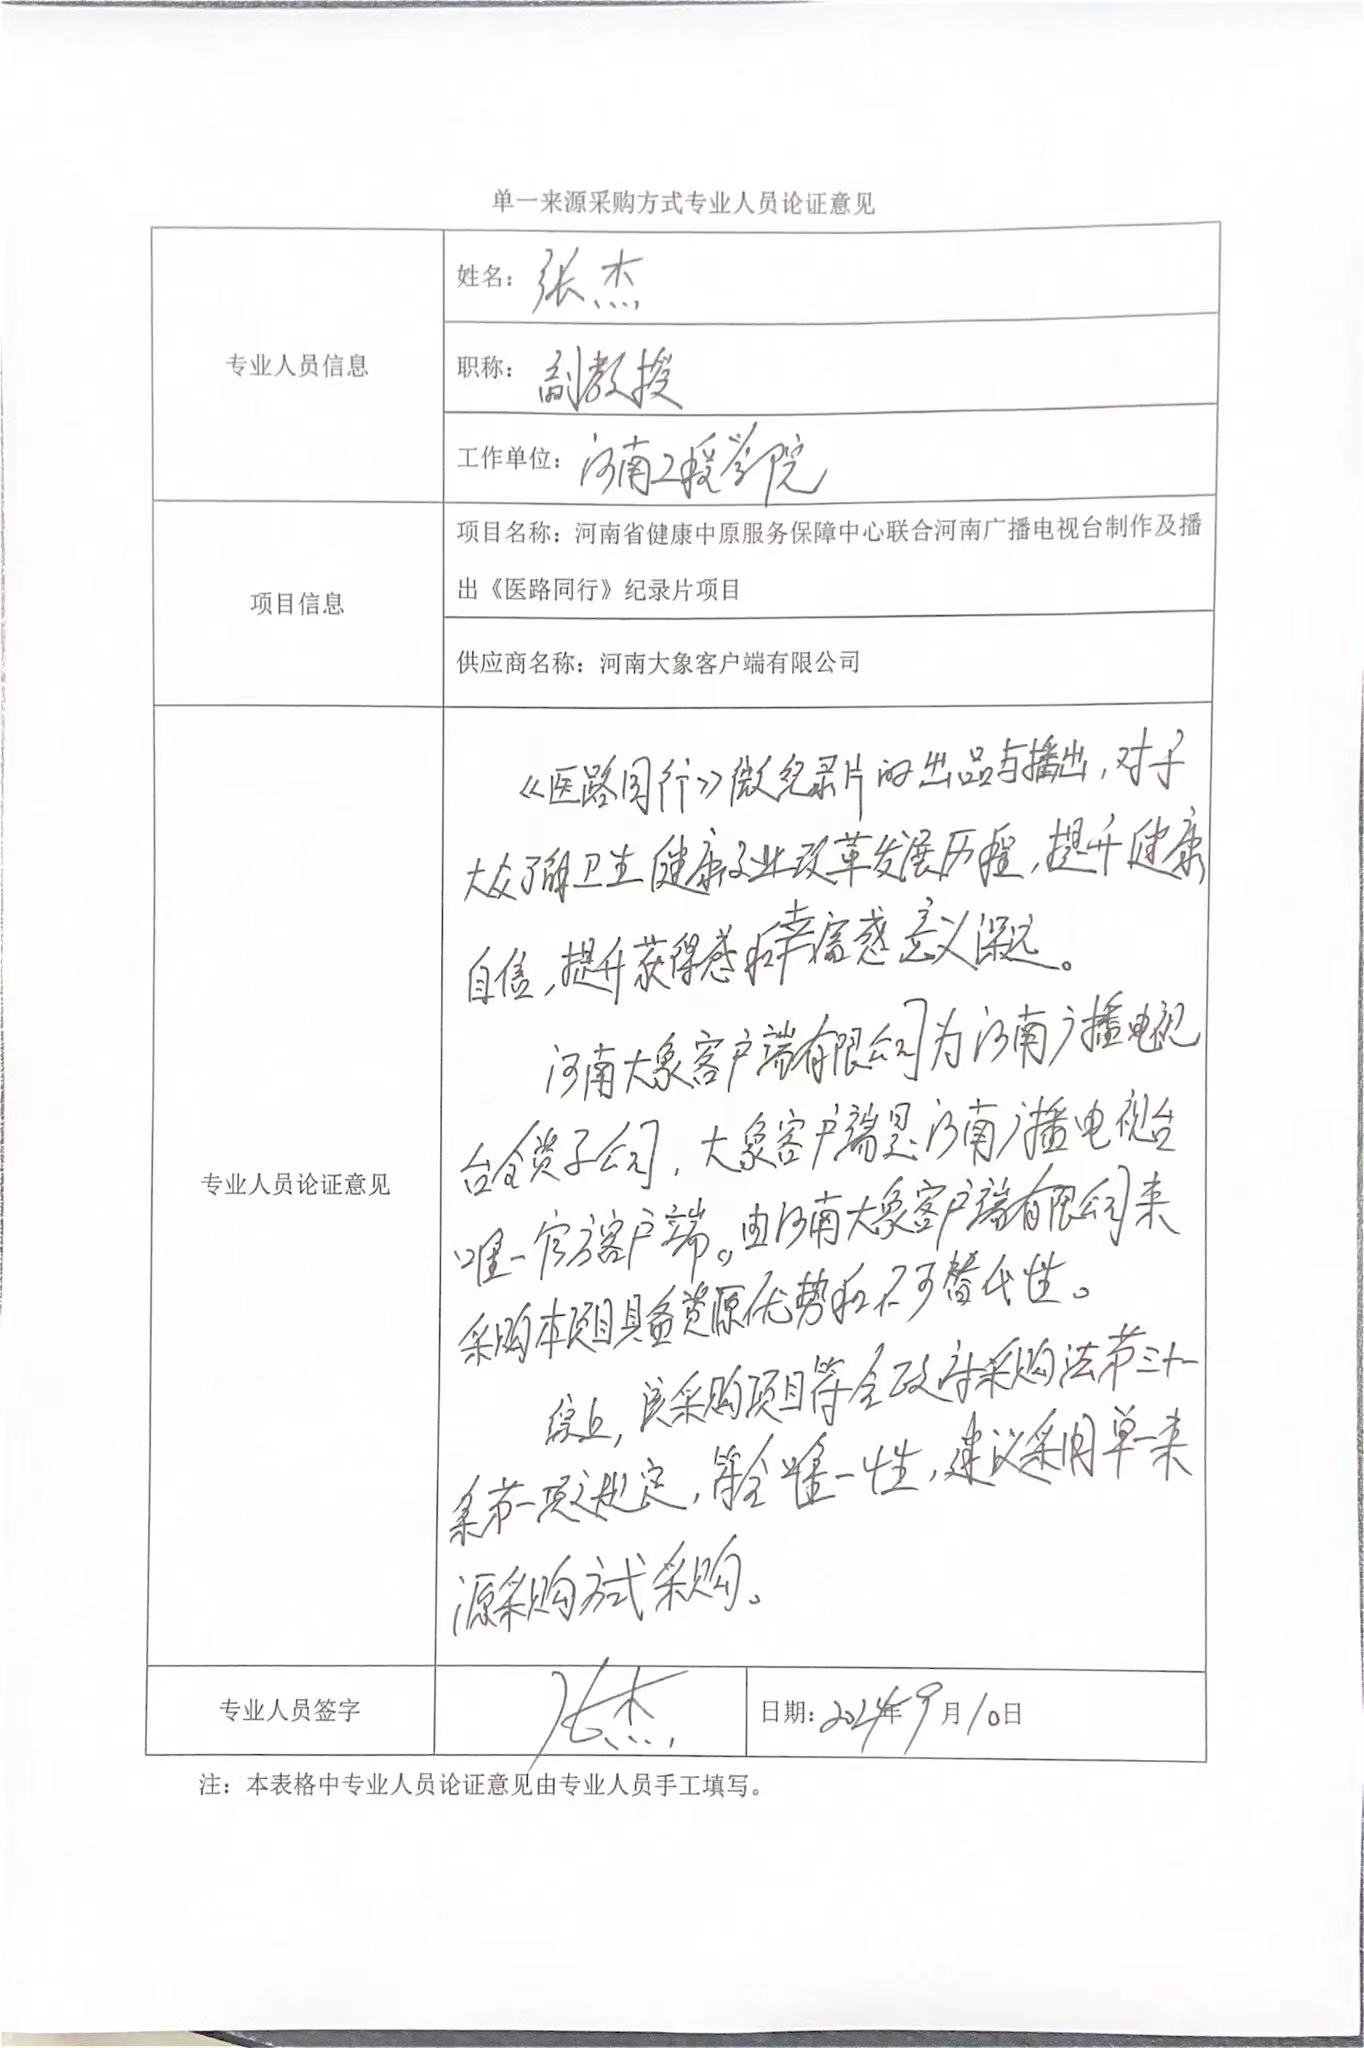 单一来源采购方式专业人员论证意见
专业人员信息
姓名：张杰
职称：副教授
工作单位：河南工程学院
项目信息
项目名称：河南省健康中原服务保障中心联合河南广播电视台制作及播
出《医路同行》纪录片项目
供应商名称：河南大象客户端有限公司
专业人员论证意见
《医路同行》微纪录片的出品与播出，对于
大众了解卫生健康事业改革发展历程，提升健康
自信，提升获得感和幸福感意义深远。
河南大象客户端有限公司为河南广播电视
台全资子公司，大象客户端是河南广播电视台
唯一官方客户端。由河南大象客户端有限公司来
采购本项目具备资源优势和不可替代性。
综上，该采购项目符合政府采购法第三十一
条第一项之规定，符合唯一性，建议采用单一来
源采购方式采购。
专业人员签字
张杰
日期：2024年9月10日
注：本表格中专业人员论证意见由专业人员手工填写。